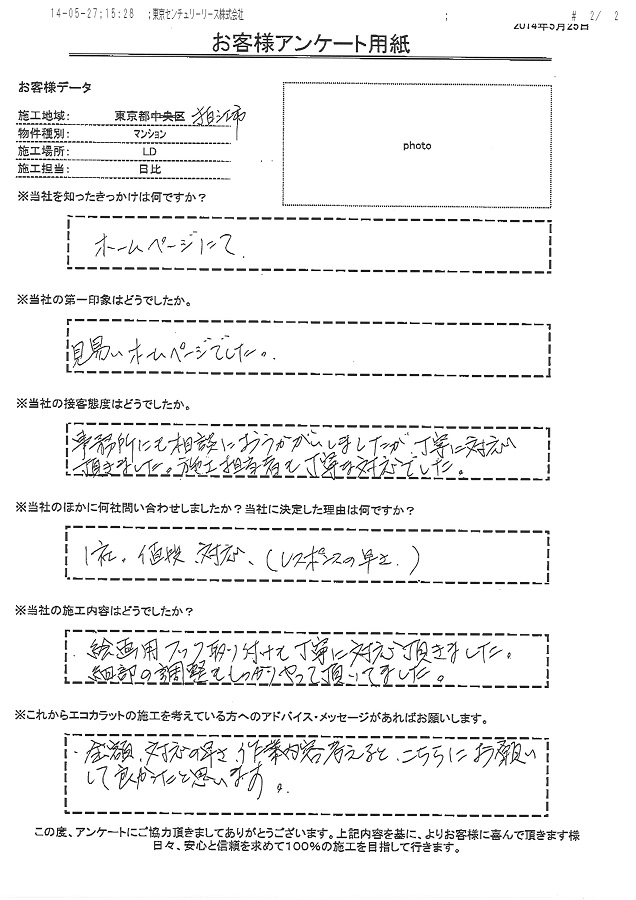 14-05-27;15:28 ;東京センチュリーリース株式会社 ; # 2/ 2
2014年5月25日
お客様アンケート用紙
お客様データ
施工地域: 東京都中央区 狛江市
物件種別: マンション
施工場所: LD
施工担当: 日比
photo
※当社を知ったきっかけは何ですか?
ホームページにて.
※当社の第一印象はどうでしたか。
見易いホームページでした。
※当社の接客態度はどうでしたか。
事務所にも相談におうかがいしましたが、丁寧に対応い
頂きました。施工担当者も丁寧な対応でした。
※当社のほかに何社問い合わせしましたか?当社に決定した理由は何ですか?
1社。価段、対応、(レスポンスの早さ.)
※当社の施工内容はどうでしたか?
・絵画用フック取り付けも丁寧に対応頂きました。
細部の調整もしっかりやって頂いてました。
※これからエコカラットの施工を考えている方へのアドバイス・メッセージがあればお願いします。
・金額、対応の早さ、作業内容考えると、こちらにお願い
して良かったと思います。
この度、アンケートにご協力頂きましてありがとうございます。上記内容を基に、よりお客様に喜んで頂きます様
日々、安心と信頼を求めて100%の施工を目指して行きます。